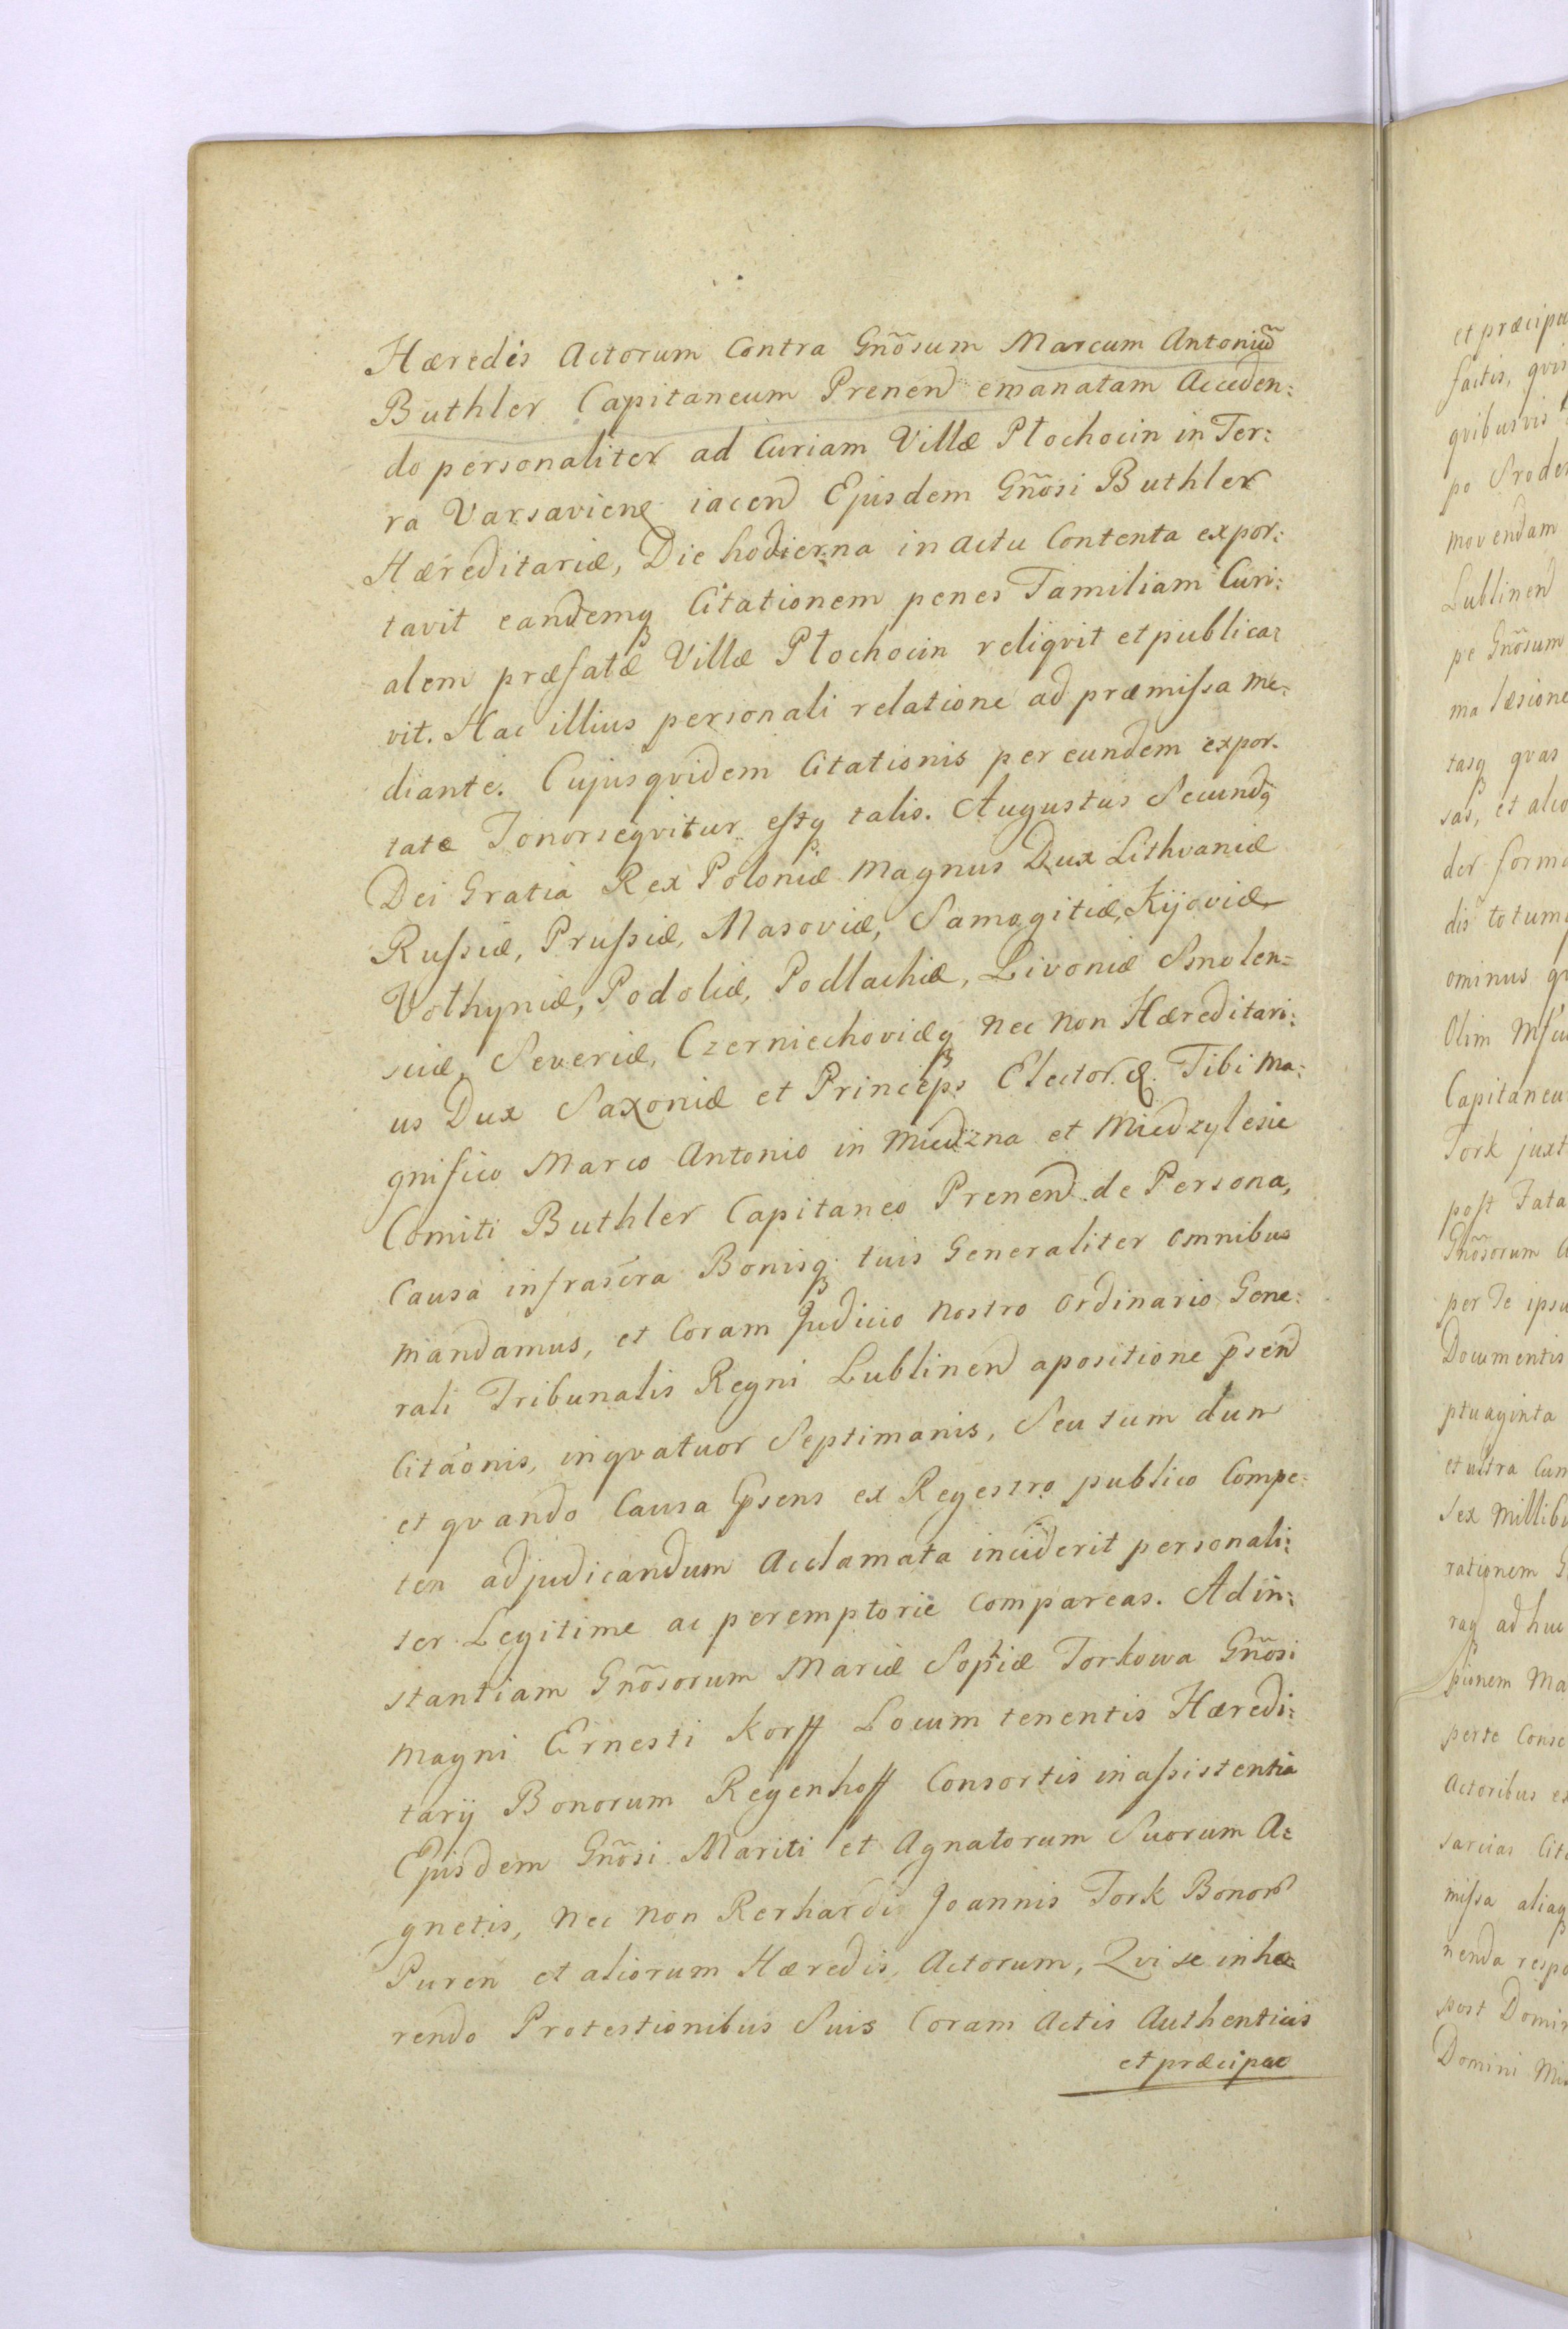 Hæredis Actorum Contra Gñosum Marcum Antoniũ
Buthler Capitaneum Prenen emanatam Acceden:
do personaliter ad Curiam Villæ Płochocin in Ter:
ra Varsavien iacen Ejusdem Gñosi Buthler
Hæreditariæ, Die hodierna in actu Contenta expor:
tavit eandemq Citationem penes Familiam Curi:
alem præfatæ Villæ Płochocin reliqvit et publica:
vit. Hac illius personali relatione ad præmissa me:
diante. Cujusqvidem Citationis per eundem expor:
tatæ Tenor seqvitur estq talis. Augustus Secundq
Dei Gratia Rex Poloniæ Magnus Dux Lithvaniæ
Russiæ, Prussiæ, Masoviæ, Samogitiæ, Kijoviæ
Vołhyniæ, Podoliæ, Podlachiæ, Livoniæ Smolen=
sciæ, Severiæ, Czerniechoviæq nec non Hæreditari:
us Dux Saxoniæ et Princeps Elector. &. Tibi Ma:
gnifico Marco Antonio in Miedzna et Miedzylesie
Comiti Buthler Capitaneo Prenen de Persona,
Causa infrascra Bonisq tuis Generaliter omnibus
mandamus, et Coram Judicio Nostro Ordinario Gene:
rali Tribunalis Regni Lublinen apositione psen
Citaonis, in qvatuor Septimanis, Seu tum dum
et qvando Causa psens ex Regestro publico Compe:
ten adjudicandum Acclamata inciderit personali:
ter Legitime ac peremptorie Compareas. Ad in:
stantiam Gñosorum Mariæ Sophiæ Torkowa Gñosi
Magni Ernesti Korff Locum tenentis Hæredi:
tarij Bonorum Regenhoff Consortis in assistentia
Ejusdem Gñosi Mariti et Agnatorum Suorum A:
gnetis, nec non Rerhardi Joannis Tork Bonor
Puren et aliorum Hæredis, Actorum, Qvi se inhæ
rendo Protestionibus Suis Coram Actis Authenticis
et præcipue

et præcipu
factis, qvis
qvibusvis
movendam
Lublinen
pe Gñosum
ma læsione
tasq qvas
sas, et alio
der forma
dis totumq
ominus qv
Olim
Capitaneu
Tork juxt
post Fata
Gñosorum
per Te ipsu
Documentis
ptuaginta
et ultra Cum
Sex Millibu
rationem
raq adhuc
pionem Ma
perte Conse
Actoribus ex
sarcias Cit
missa aliaq
nenda respo
post Domin
Domini